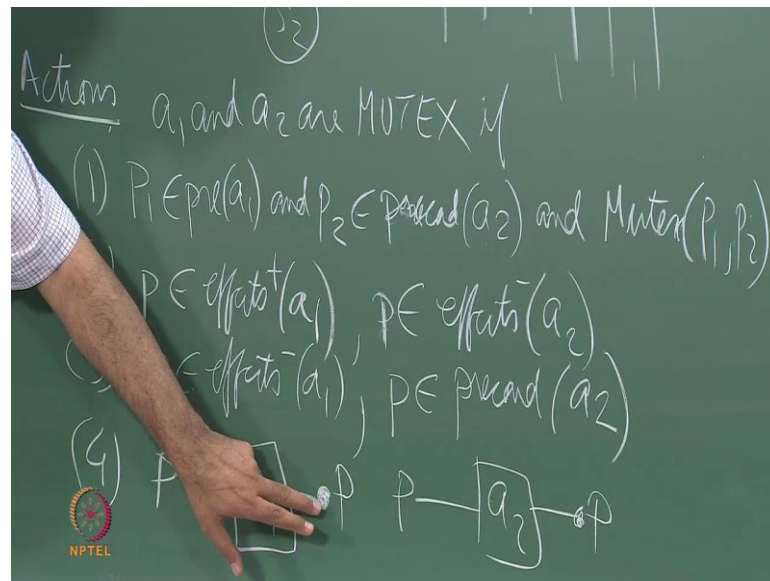 S2
Actions a1 and a2 are MUTEX if
(1) P1 ∈ pre(a1) and P2 ∈ precond(a2) and Mutex(P1, P2)
P ∈ effects+(a1), P ∈ effects-(a2)
∈ effects-(a1), P ∈ precond(a2)
(4) P P P a2 P
NPTEL